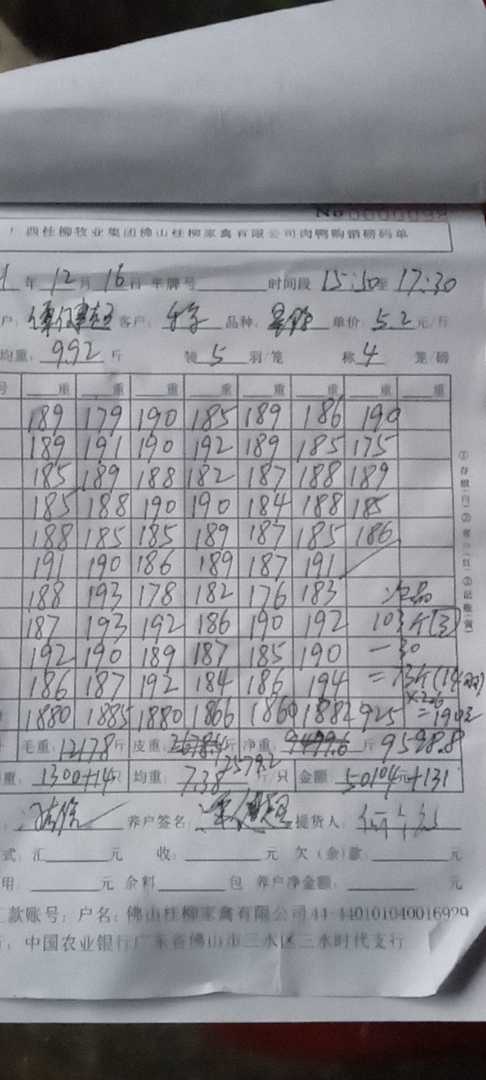 No 0000098
广西桂柳牧业集团佛山桂柳家禽有限公司肉鸭购销磅码单
年 12 月 16 日 车牌号 时间段 15:50至 17:30
户: 客户: 品种: 单价: 5.2 元/斤
均重: 992 斤 装 5 羽/笼 称 4 笼/磅
号 重 重 重 重 重 重 重 重
189 179 190 185 189 186 190
189 191 190 192 189 185 175
185 189 188 182 187 188 189
185 188 190 190 184 188 185
188 185 185 189 187 185 186
191 190 186 189 187 191
188 193 178 182 176 183 次品
187 193 192 186 190 192 103斤
192 190 189 187 185 190 -30
186 187 192 184 186 194 =73斤
1880 1885 1880 1866 1860 1882 925
毛重: 12178 斤 皮重: 斤 净重: 斤 9598.8
2579.2
重: 1300+14只 均重: 7.38 斤/只 金额: 50104元+131
养户签名: 提货人:
式: 汇 元 收: 元 欠(余)款: 元
用: 元 余料 包 养户净金额: 元
款账号: 户名: 佛山桂柳家禽有限公司44-440101040016929
行: 中国农业银行广东省佛山市三水区三水时代支行
①存根(白)②客户(红)③记账(黄)